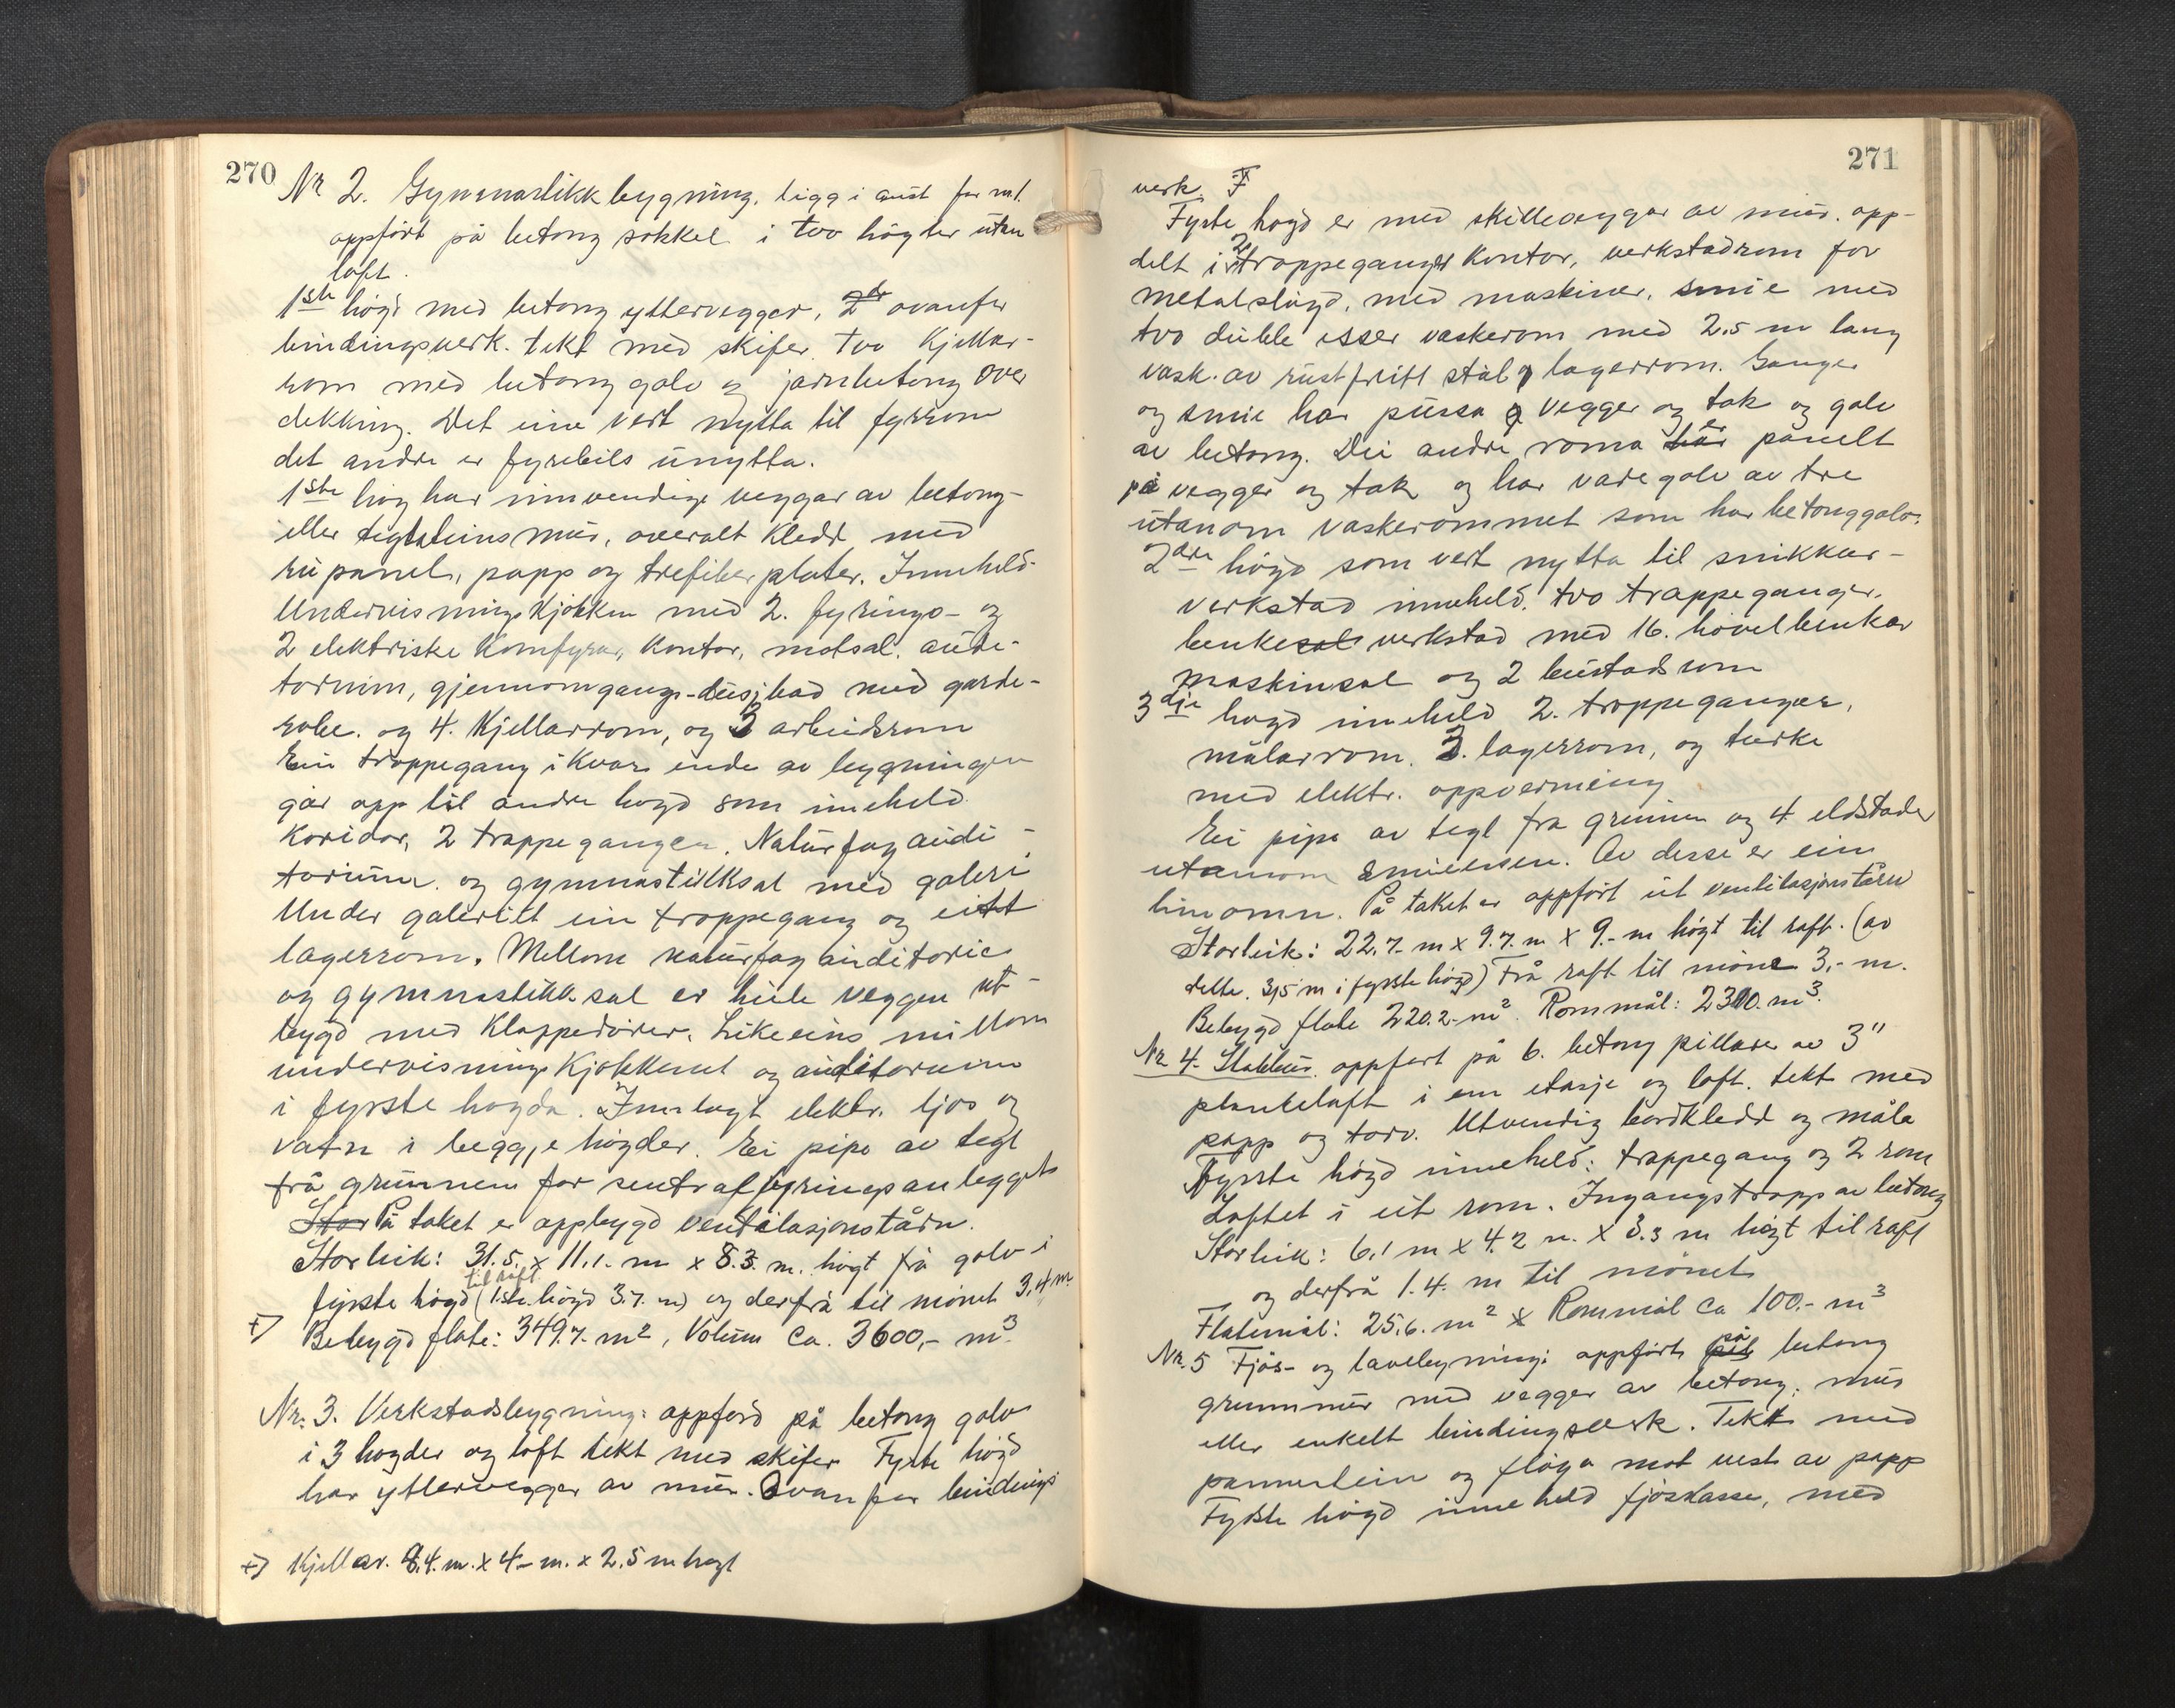 270
Nr 2. Gymnastikkbygning, ligg i aust for nr 1.
oppført på betong sokkel i tvo høgder utan
loft.
1ste høgd med betong yttervegger, 2dr ovanfor
bindingsverk. tekt med skifer. Tvo kjellar-
rom med betong golv og jarnbetong over
dekking. Det eine vert nytta til fyrrom
det andre er fyrebils unytta.
1ste høg har innvendige veggar av betong-
eller teglsteinsmur, overalt kledd med
rupanel, papp og trefiberplater. Inneheld
Undervisningskjøkken med 2. fyrings- og
2 elektriske Komfyrar, Kontor, matsal, audi-
torium, gjennomgangs-dusjbad med garde-
robe. og 4. Kjellarrom, og 3 arbeidsrom
Ein trappegang i kvar ende av bygningen
går opp til andre høgd som inneheld
Koridor, 2 trappeganger. Naturfag audi-
torium. og gymnastikksal med galeri
Under galeriet ein trappegang og eitt
lagerrom. Mellom naturfag auditorie
og gymnastikksal er heile veggen ut-
bygd med Klappedører. Likeeins millom
undervisningskjøkkenet og auditorium
i fyrste høgda. Innlagt elektr. ljos og
vatn i beggje høgder. Ei pipe av tegl
frå grunnen for sentralfyringsanleggets
Stor På taket er oppbygd ventilasjonstårn.
Storleik: 31.5. x 11.1. m x 8.3. m. høgt frå golv i
til raft
fyrste høgd (1ste høgd 3.7. m) og derfrå til mønet 3,4 m.
+) Bebygd flate: 349.7. m², Volum ca. 3600,- m³.
Nr. 3. Verkstadsbygning: oppførd på betong golv
i 3 høgder og loft tekt med skifer Fyrste høgd
har yttervegger av mur. Ovanfor bindings
+) Kjellar. 8.4. m. x 4- m. x 2.5 m høgt
271
verk. F
Fyrste høgd er med skilleveggar av mur. opp-
2
delt i trappeganger Kontor, verkstadrom for
metalsløyd, med maskiner, smie med
tvo duble esser vaskerom med 2.5 m lang
vask. av rustfritt stål og lagerrom. Ganger
og smie har pussa vegger og tak og golv
er
av betong. Dei andre roma har panelt
på vegger og tak og har vare golv av tre
utanom vaskerommet som har betonggolv.
2are høgd som vert nytta til snikkar-
verkstad inneheld. tvo trappeganger.
benkesal verkstad med 16. høvelbenkar
maskinsal og 2 bustadrom
3dje høgd inneheld 2. trappeganger,
målarrom. 3. lagerrom, og tørke
med elektr. oppverming
Ei pipe av tegl fra grunnen og 4 eldstader
utanom smieessen. Av desse er ein
limomn. På taket er oppført eit ventilasjonstårn
Storleik: 22.7. m x 9.7. m x 9.- m høgt til raft. (av
dette. 3,5 m i fyrste høgd) Frå raft til møne 3,- m.
Bebygd flate 220.2- m². Rommål: 2310. m³.
Nr 4. Stabbur. oppført på 6. betong pillarer av 3"
plankelaft i ein etasje og loft. tekt med
papp og torv. Utvendig bordkledd og måla
Fyrste høgd inneheld: trappegang og 2 rom
Loftet i eit rom. Inngangstrapp av betong
Storleik: 6.1 m x 4.2 m. x 3.3 m høgt til raft
og derfrå 1.4. m til mønet
Flatemål: 25.6. m² x Rommål ca 100.- m³
på
Nr. 5 Fjøs- og låvebygning: oppført betong
grunnmur med vegger av betong, mur
eller enkelt bindingsverk. Tekt med
pannestein og fløya mot vest av papp
Fyrste høgd inneheld fjøskasse, med